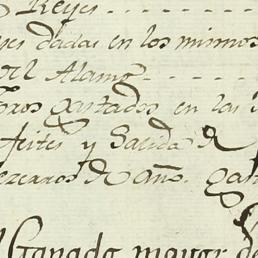 Reyes - - - - - -
ses dadas en los mismos
el Alamo - - - - - -
oros gastados en las
feites y Salida de
ezeros de año. gas
l Ganado mayor de